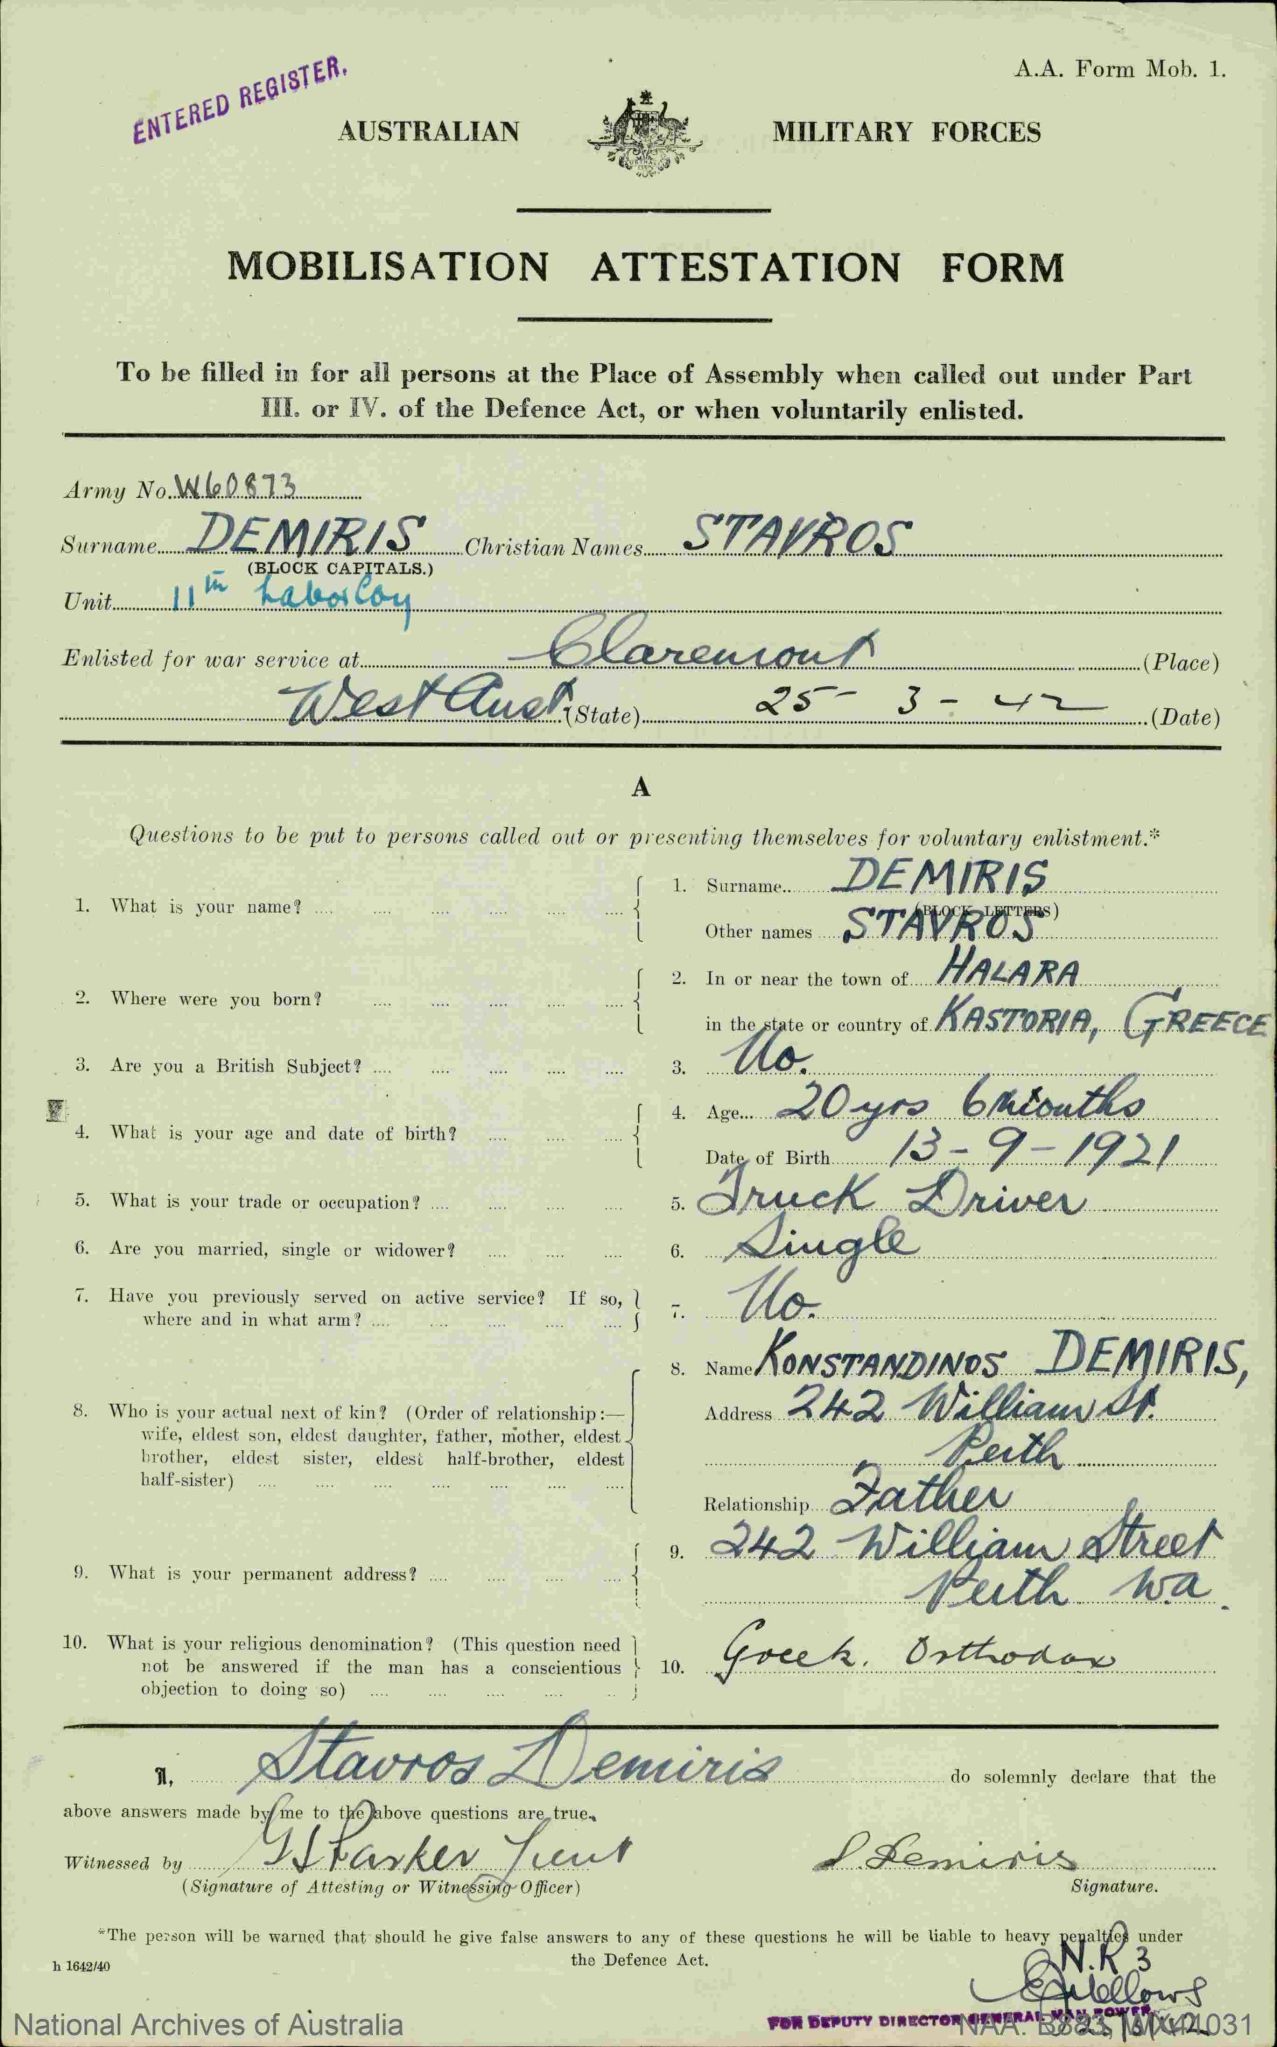 ENTERED REGISTER.
A.A. Form Mob. 1.
AUSTRALIAN MILITARY FORCES
MOBILISATION ATTESTATION FORM
To be filled in for all persons at the Place of Assembly when called out under Part
III. or IV. of the Defence Act, or when voluntarily enlisted.
Army No. W60873
Surname DEMIRIS Christian Names STAVROS
(BLOCK CAPITALS.)
Unit 11th Labor Coy
Enlisted for war service at Claremont (Place)
West Aust. (State) 25-3-42 (Date)
A
Questions to be put to persons called out or presenting themselves for voluntary enlistment.*
1. What is your name? .... 1. Surname DEMIRIS
(BLOCK LETTERS)
Other names STAVROS
2. Where were you born? 2. In or near the town of HALARA
in the state or country of KASTORIA, GREECE
3. Are you a British Subject? .... 3. No.
4. What is your age and date of birth? 4. Age 20 yrs 6 months
Date of Birth 13-9-1921
5. What is your trade or occupation? .... 5. Truck Driver
6. Are you married, single or widower? 6. Single
7. Have you previously served on active service? If so,
where and in what arm? .... 7. No.
8. Who is your actual next of kin? (Order of relationship:—
wife, eldest son, eldest daughter, father, mother, eldest
brother, eldest sister, eldest half-brother, eldest
half-sister)
8. Name KONSTANDINOS DEMIRIS,
Address 242 William St.
Perth
Relationship Father
9. What is your permanent address? .... 9. 242 William Street
Perth W.A.
10. What is your religious denomination? (This question need
not be answered if the man has a conscientious
objection to doing so) .... 10. Greek. Orthodox
I, Stavros Demiris do solemnly declare that the
above answers made by me to the above questions are true.
Witnessed by G S Parker Lieut S. Demiris
(Signature of Attesting or Witnessing Officer) Signature.
*The person will be warned that should he give false answers to any of these questions he will be liable to heavy penalties under
the Defence Act.
h 1642/40
N.R 3
FOR DEPUTY DIRECTOR GENERAL MAN POWER
National Archives of Australia NAA: B883, WX44031